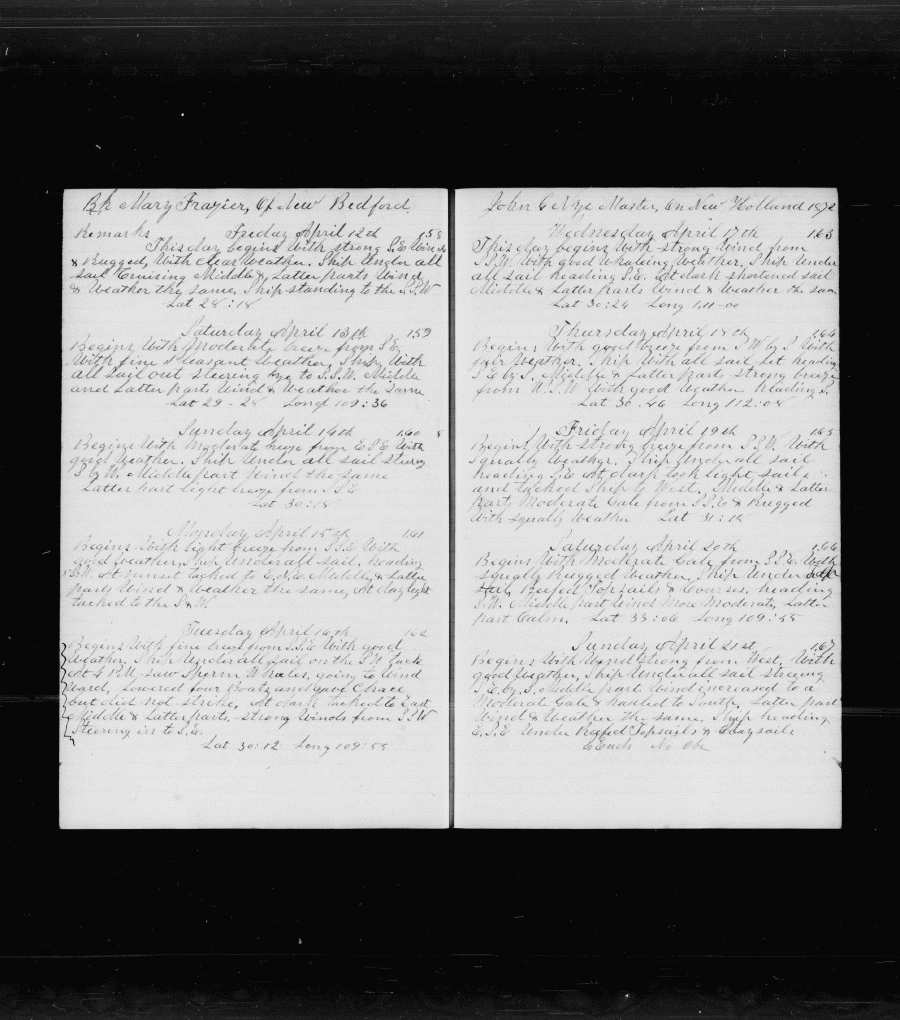 Bk Mary Frazier, Of New Bedford.
Remarks Friday April 12th 158
This day begins With strong S.E Winds
& Rugged, With clear Weather. Ship Under all
sail Cruising Middle & Latter parts Wind
& Weather the same, Ship standing to the S.S.W
Lat 28:18
Saturday April 13th 159
Begins With Moderate breeze from S.E
With fine pleasant Weather, Ship With
all sail out steering by to S.S.W. Middle
and Latter parts Wind & Weather the same
Lat 29-28 Long 109:36
Sunday April 14th 160
Begins With Moderate breeze from E.S.E With
good Weather. Ship Under all sail steering
S by W. Middle part Wind the same
Latter part light breeze from S.E
Lat 30:18
Monday April 15th 161
Begins With light breeze from S.S.E With
good Weather, Ship Under all sail, heading
S.W. At sunset tacked to E.N.E. Middle & Latter
parts Wind & Weather the same, At daylight
tacked to the S&W.
Tuesday April 16th 162
Begins With fine breeze from S.S.E With good
Weather. Ship Under all sail on the S.W Tack
At 4 P.M, saw Sperm Whales, going to Wind
Ward, Lowered four Boats and gave Chace
but did not strike, At dark tacked to East
Middle & Latter parts, strong Winds from S.S.W
Steering in to S.E.
Lat 30:12 Long 109:55
John C Nye Master, On New Holland 1872
Wednesday April 17th 163
This day begins With strong Wind from
S.S.W. With good Whaleing Weather, Ship Under
all sail heading S.E. At dark shortened sail
Middle & Latter parts Wind & Weather the same
Lat 30:24 Long 111-00
Thursday April 18th 164
Begins With good breeze from S W by S With
Weather, Ship With all sail set heading
S.E by S, Middle & Latter parts strong breeze
from W.S.W With good Weather heading S.
Lat 30.46 Long 112:08
Friday April 19th 165
Begins With strong breeze from S.S.W. With
squally Weather, Ship Under all sail
heading S.E At dark took light sails in
and tacked Ship to West. Middle & Latter
parts Moderate Gale from S.S.E & Rugged
With squally Weather Lat 31:18
Saturday April 20th 166
Begins With Moderate Gale from S.S.E. With
squally Rugged Weather, Ship Under
Reefed Topsails & Courses, heading
S.W. Middle part Wind More Moderate, Latter
part Calm. Lat 33:06 Long 109:55
Sunday April 21st 167
Begins With Wind strong from West. With
good Weather, Ship Under all sail steering
S.E. by S. Middle part Wind increased to a
Moderate Gale & hauled to South, Latter part
Wind & Weather the same, Ship heading
E.S.E Under Reefed Topsails & Stay sails
So Ends No Obs